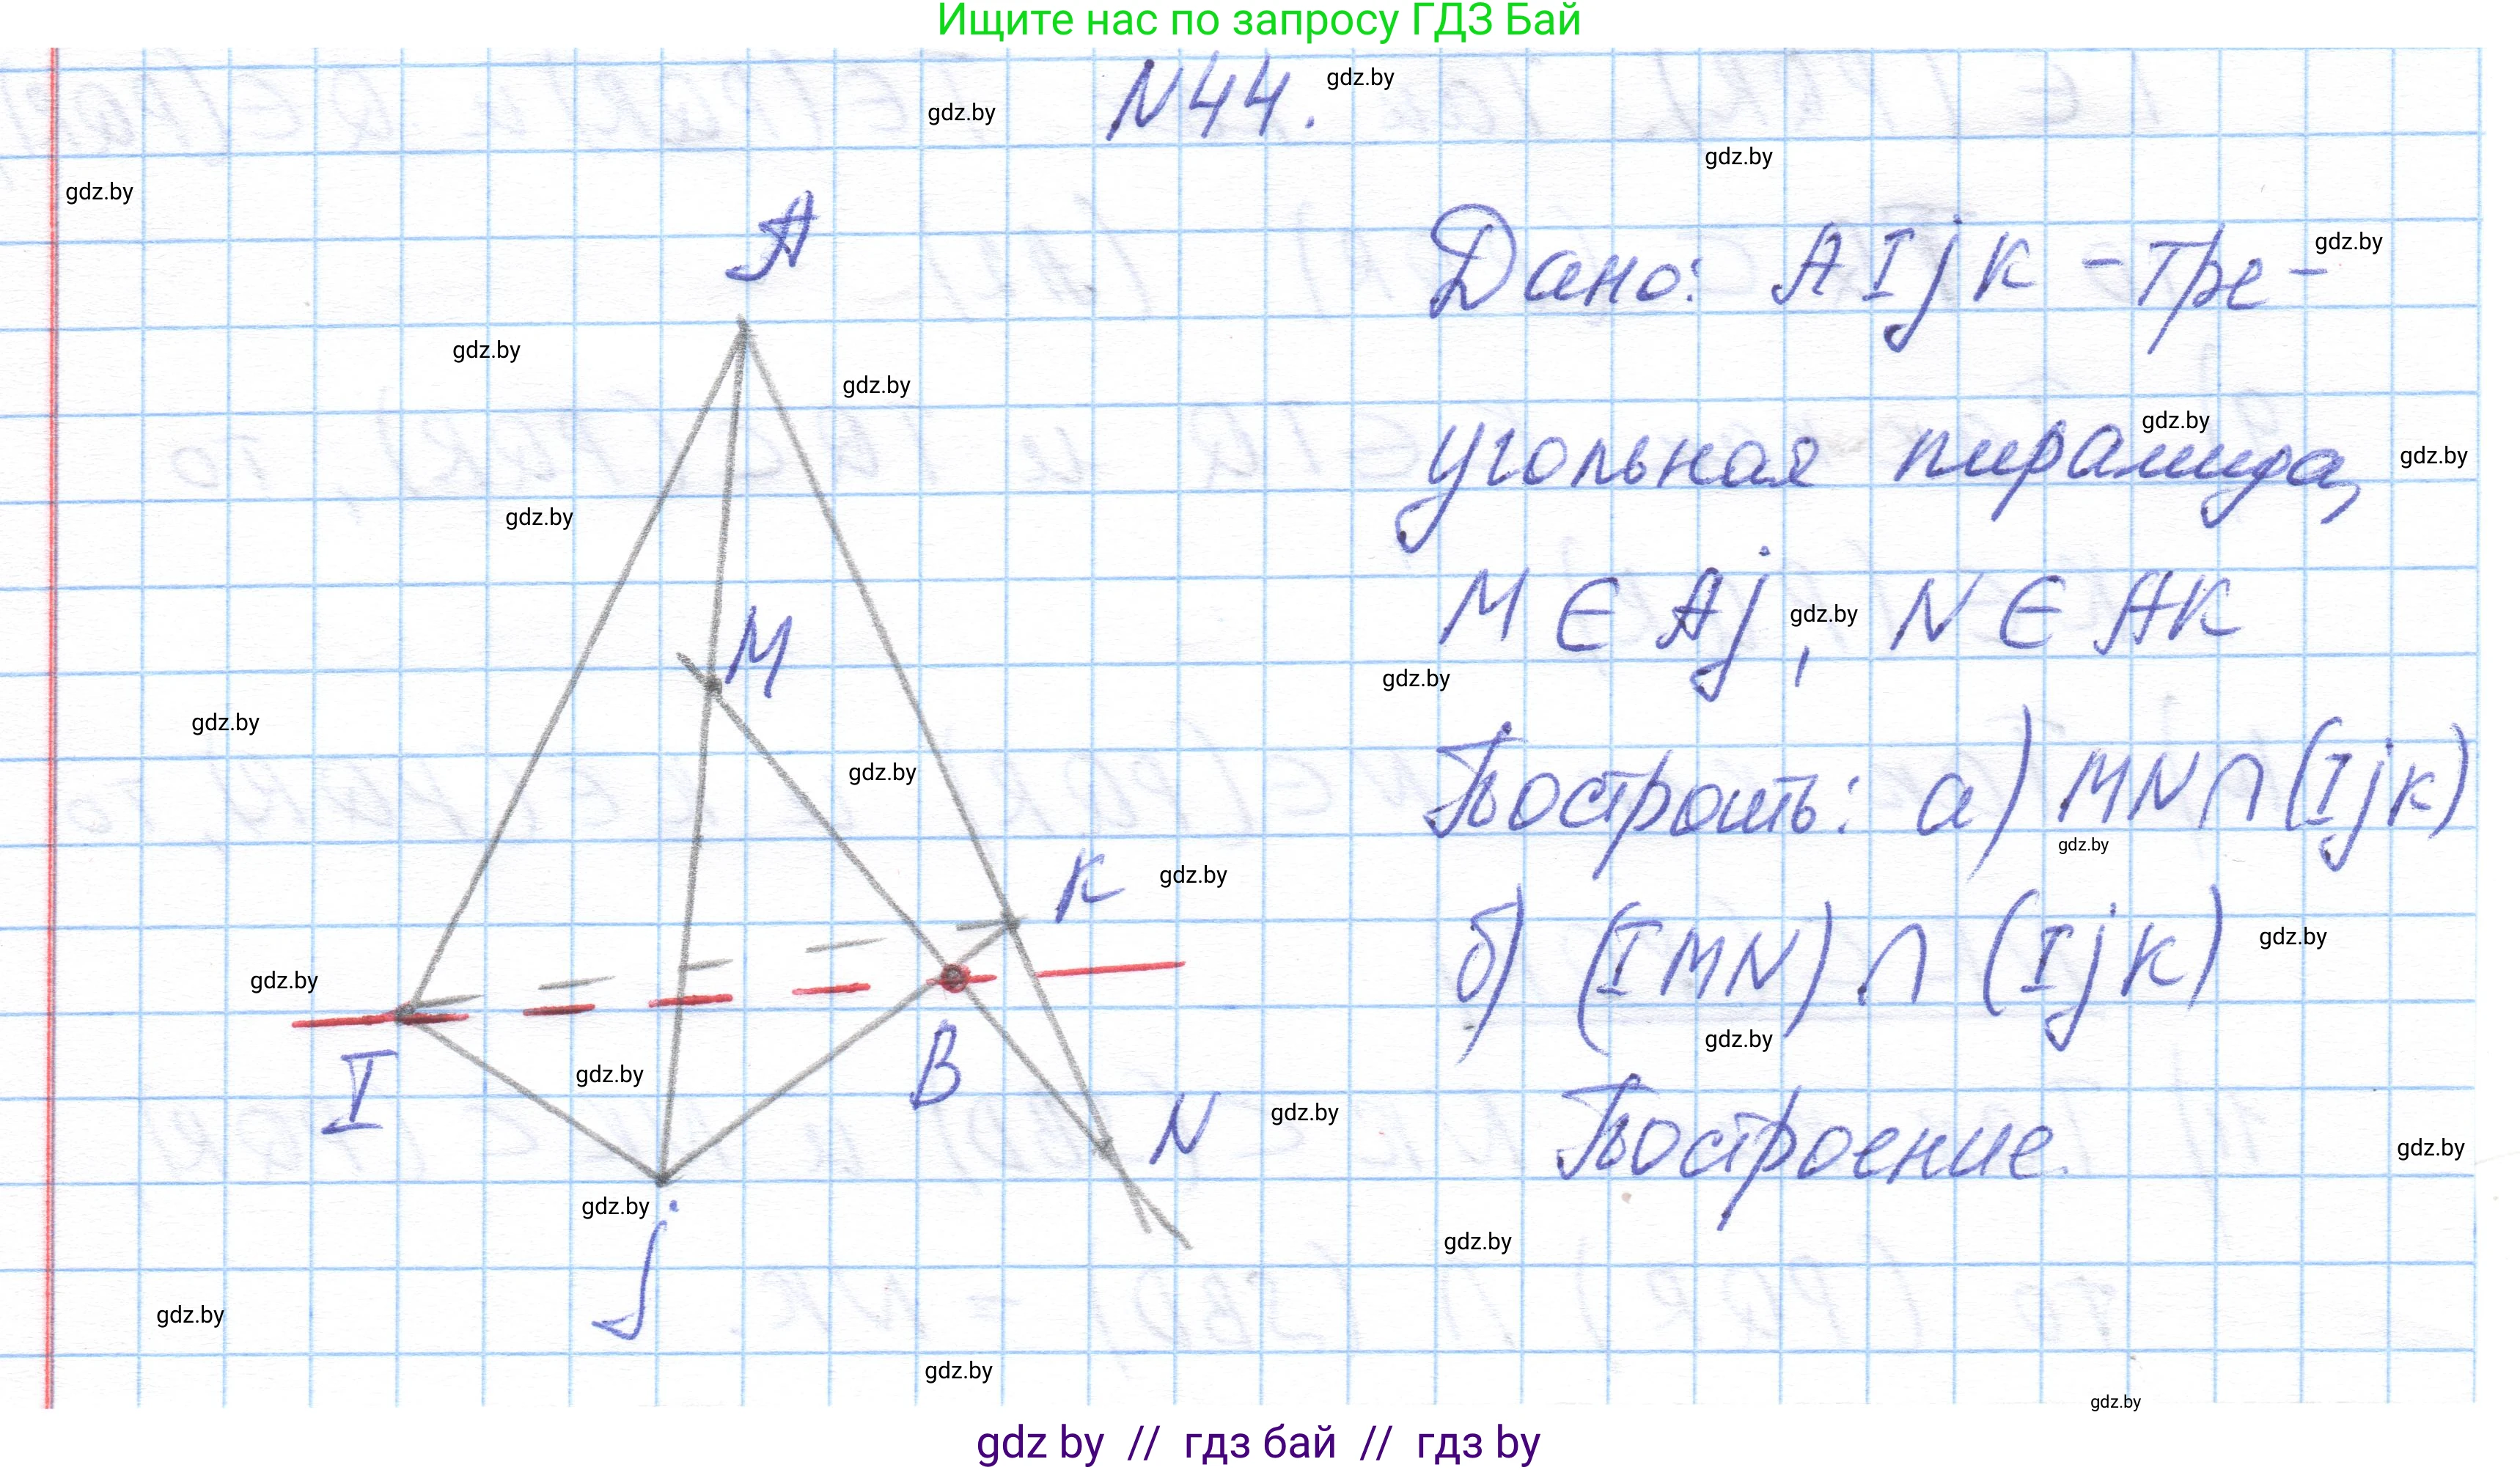 Ищите нас по запросу ГДЗ Бай
N44.
gdz.by
gdz.by
gdz.by
gdz.by
A
Дано: AIjK - тре-
gdz.by
gdz.by
gdz.by
угольная пирамида,
gdz.by
gdz.by
gdz.by
M ∈ Aj, N ∈ AK
gdz.by
M
gdz.by
gdz.by
Построить: а) MN ∩ (IjK)
gdz.by
gdz.by
K
gdz.by
б) (IMN) ∩ (IjK)
gdz.by
gdz.by
gdz.by
I
gdz.by
B
N
gdz.by
Построение.
gdz.by
gdz.by
j
gdz.by
gdz.by
gdz.by
gdz.by
gdz by // гдз бай // гдз by